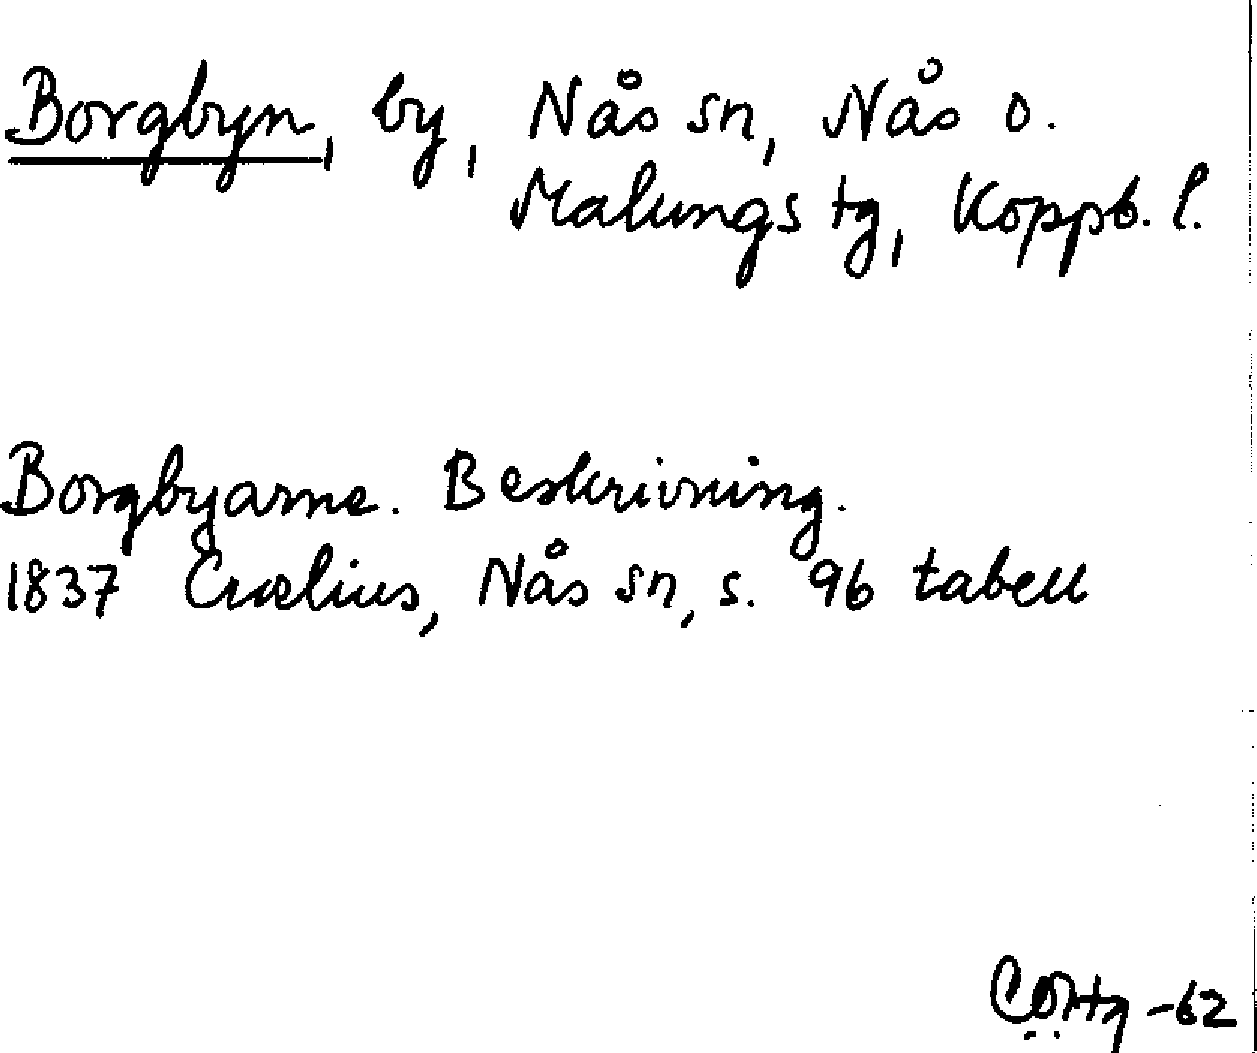 Borgbyn, by, Nås sn, Nås o.
Malungs tg, Koppb. l.
Borgbyarne. Beskrivning.
1837 Crælius, Nås sn, s. 96 tabell
-62